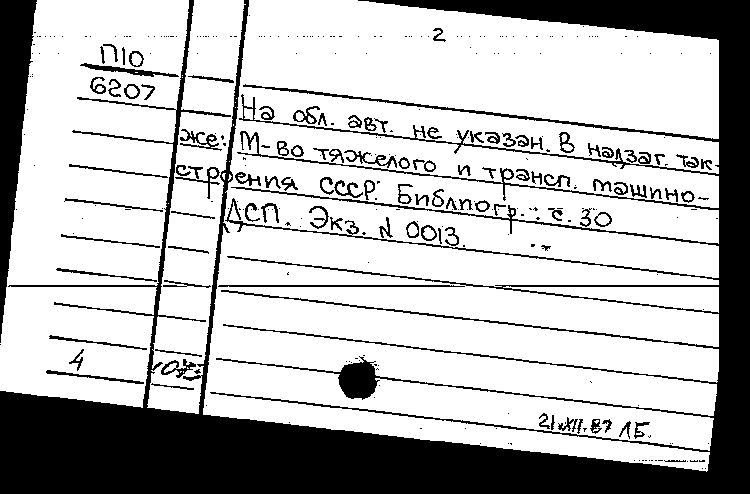 2
П10
6207
На обл. авт. не указан. В надзаг. так-
же: М-во тяжелого и трансп. машино-
строения СССР. Библиогр.: с. 30
ДСП. Экз. № 0013.
4
21.XII.87 ЛБ.